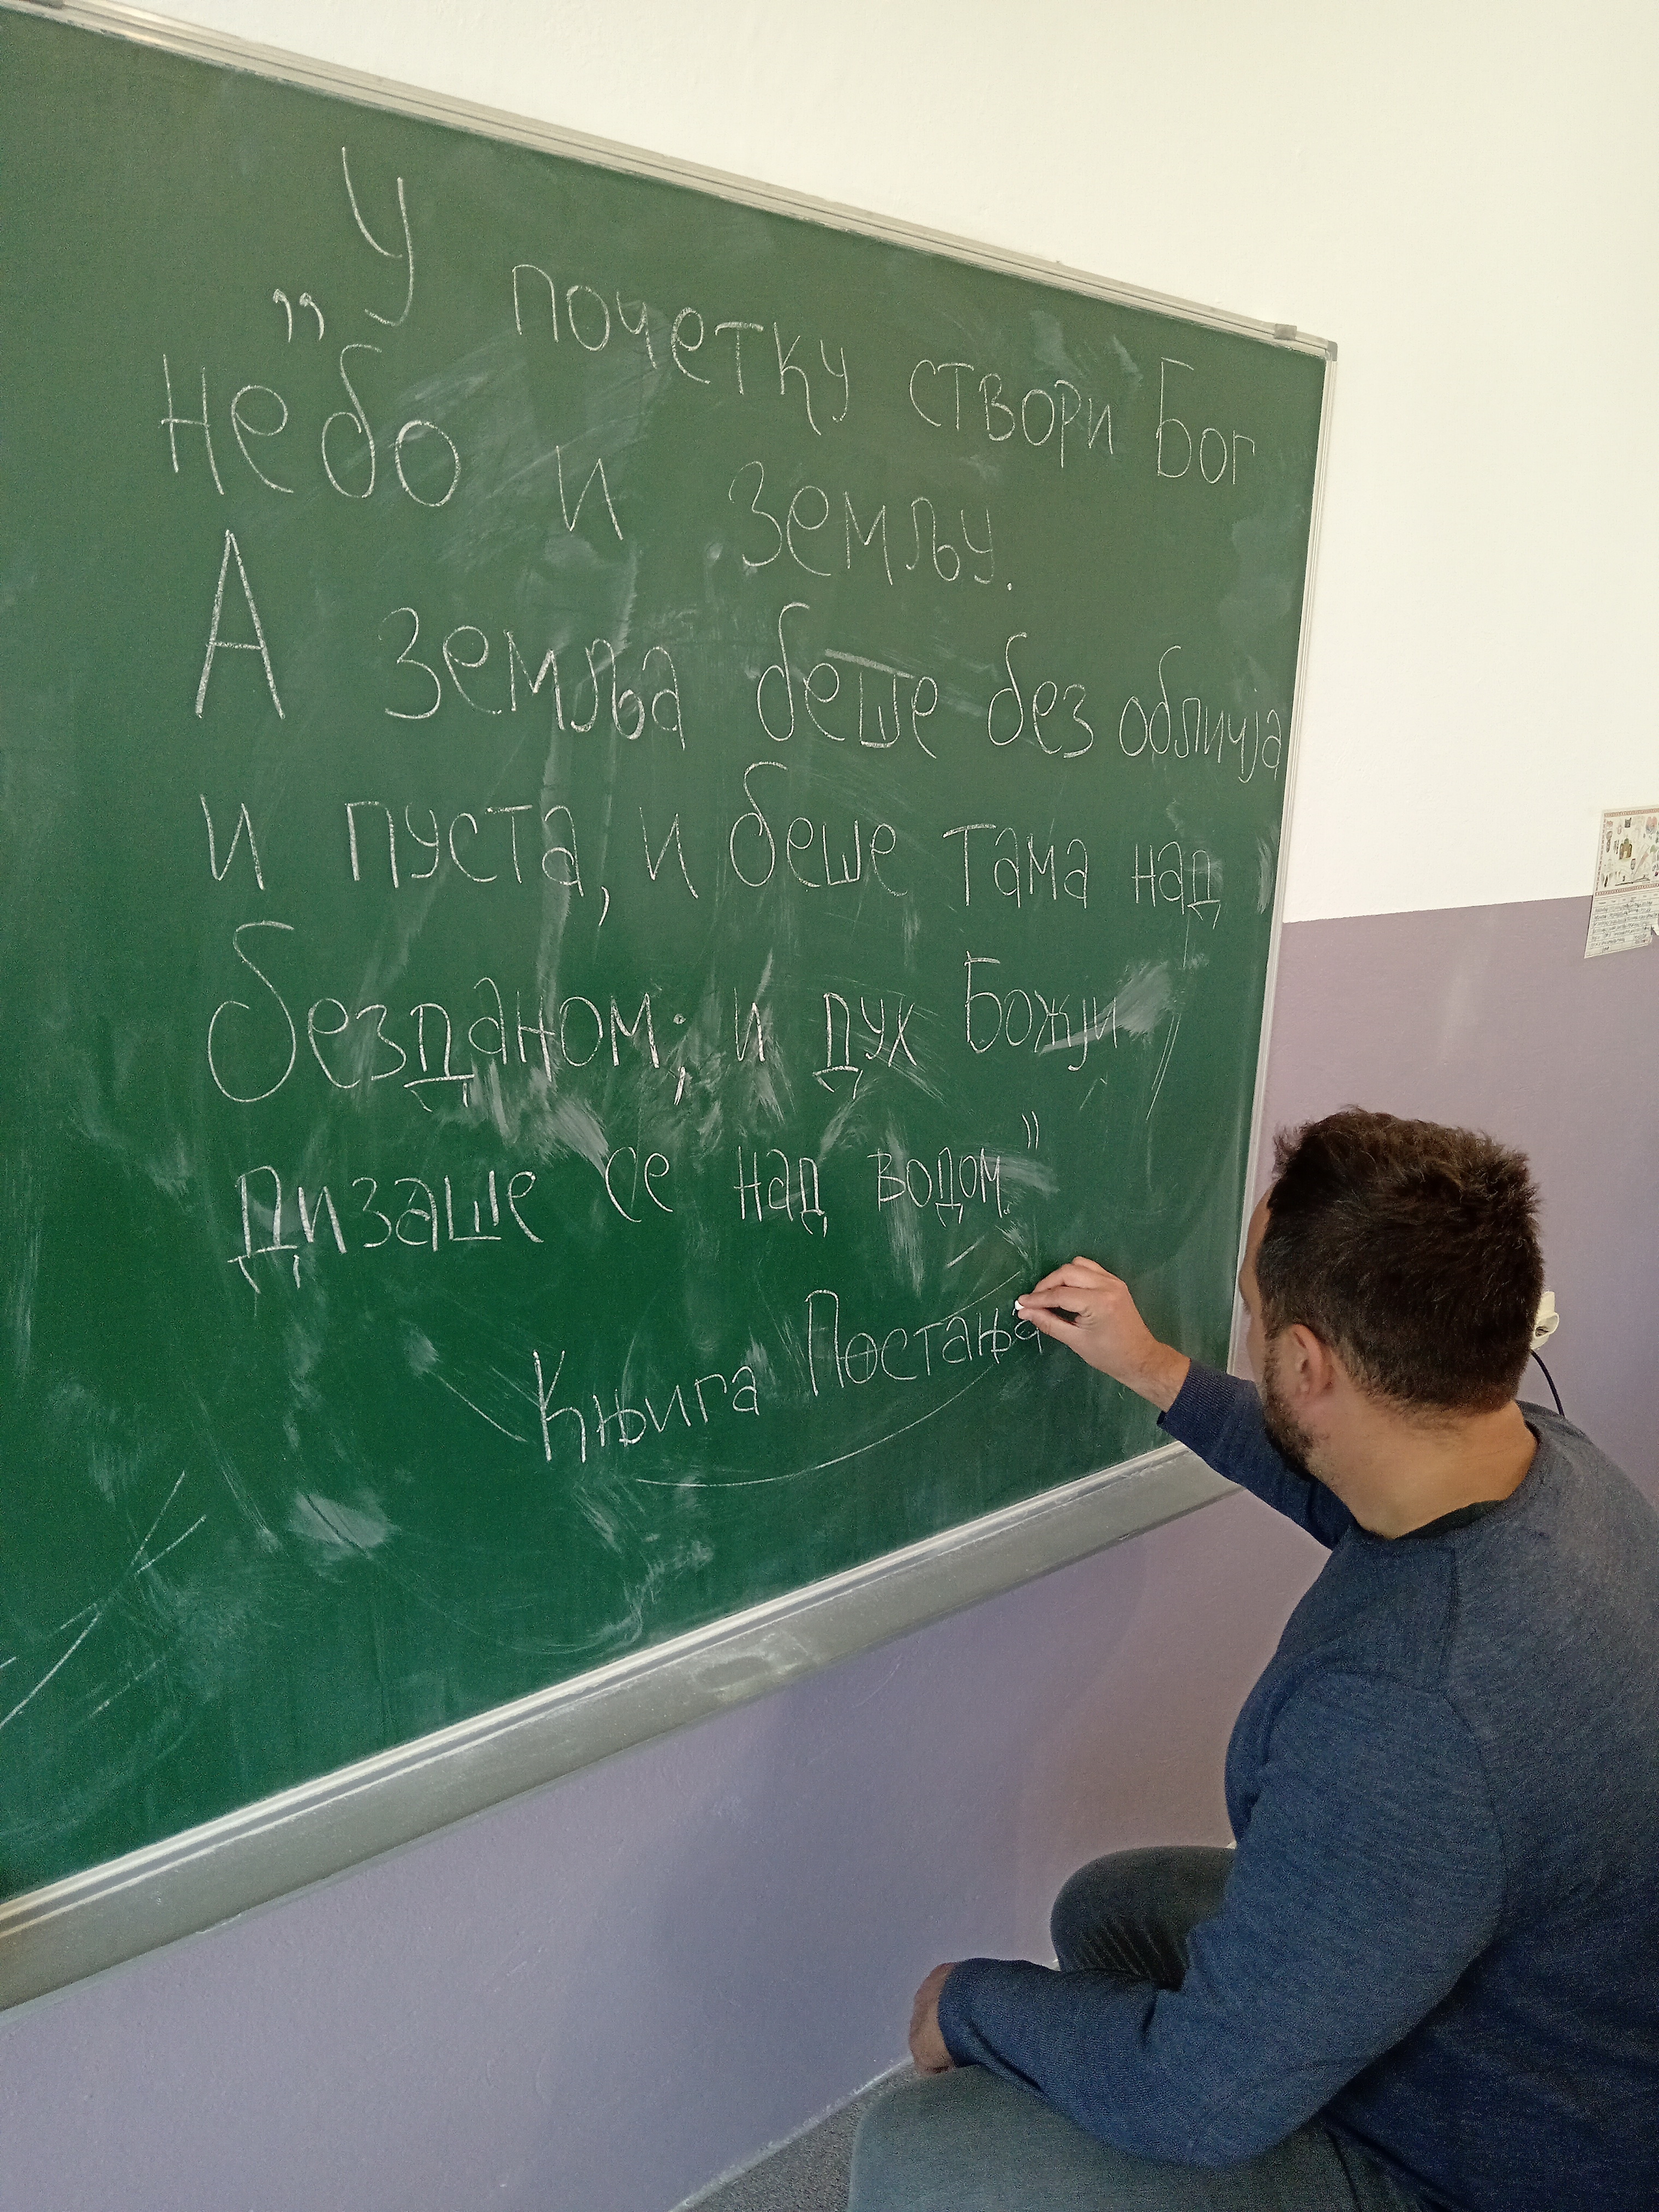 „У почетку створи Бог
небо и земљу.
А земља беше без обличја
и пуста, и беше тама над
безданом; и дух Божји
дизаше се над водом."
Књига Постања